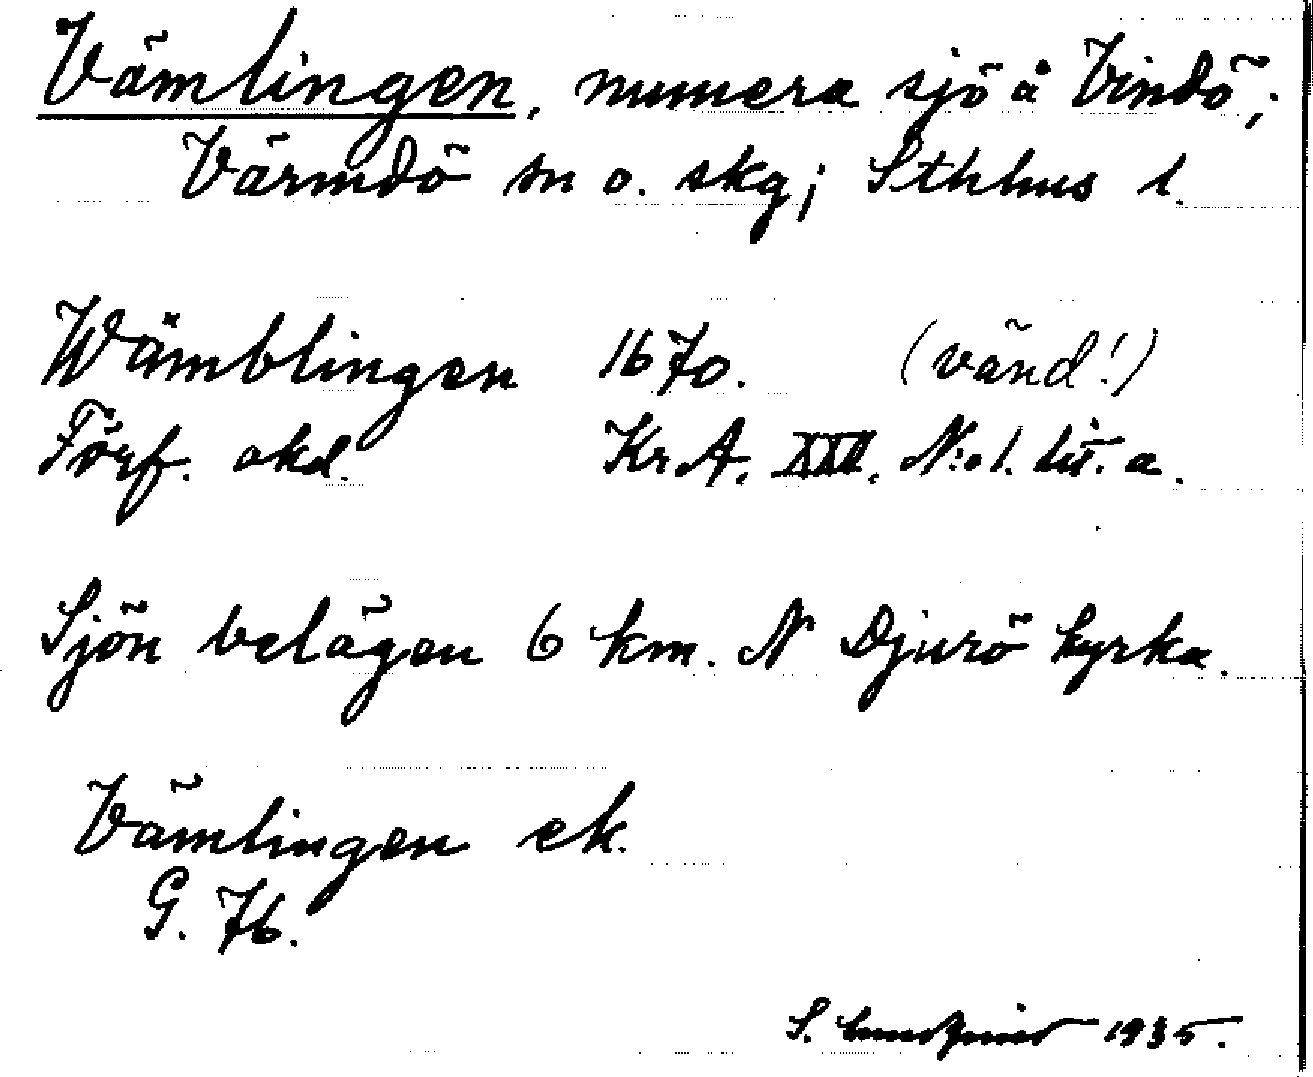 Vämlingen, numera sjö å Vindö,
Värmdö sn o. skg; Sthlms l.
Wämblingen 1670. (vänd!)
Förf. okd. Kr.A. XXII. N:o 1. lit. a.
Sjön belägen 6 km. N Djurö kyrka.
Vämlingen ek.
G. 76.
S. 1935.